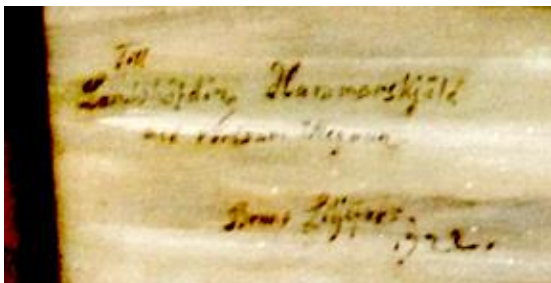 Till
Landshöfding Hammarskjöld
Bruno Liljefors.
1922.